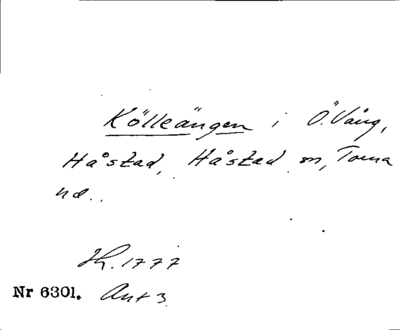 Kölleängen i Ö. Vång,
Håstad, Håstad sn, Torna
hd..
Sk. 1777
Nr 6301. Akt 3.